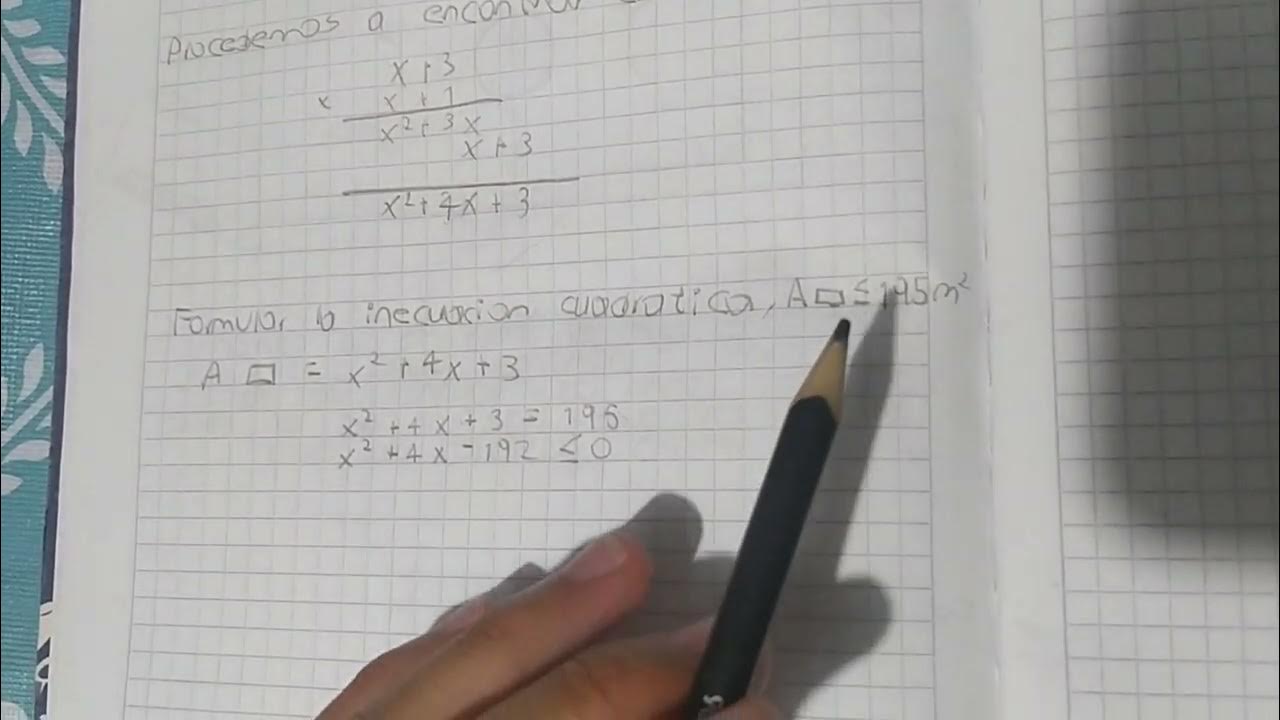 Procedemos a encontrar
x + 3
x x + 1
x² + 3x
x + 3
x² + 4x + 3
Formular la inecuacion cuadratica, A ▭ ≤ 195 m²
A ▭ = x² + 4x + 3
x² + 4x + 3 = 195
x² + 4x - 192 ≤ 0